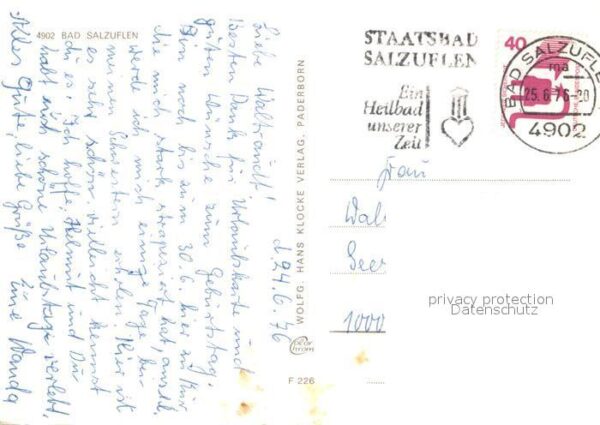 4902 BAD SALZUFLEN
d. 24.6.76
Liebe Waltraudt!
Besten Dank für Urlaubskarte und
guten Wünsche zum Geburtstag.
Bin noch bis zum 30.6. hier zu Kur
die mich stark strapaziert hat, anschl.
werde ich mich einige Tage bei
meinen Schwestern erholen. Hier ist
es sehr schön, vielleicht kennst
du es. Ich hoffe, Helmut und Du
habt auch schöne Urlaubstage verlebt.
Alles Gute, liebe Grüße
Wanda
WOLFG. HANS KLOCKE VERLAG, PADERBORN
F 226
STAATSBAD
SALZUFLEN
Ein
Heilbad
unserer
Zeit
40
BAD SALZUFLE
ma
25.6.76-20
4902
Frau
Wal
Seer
1000
privacy protection
Datenschutz